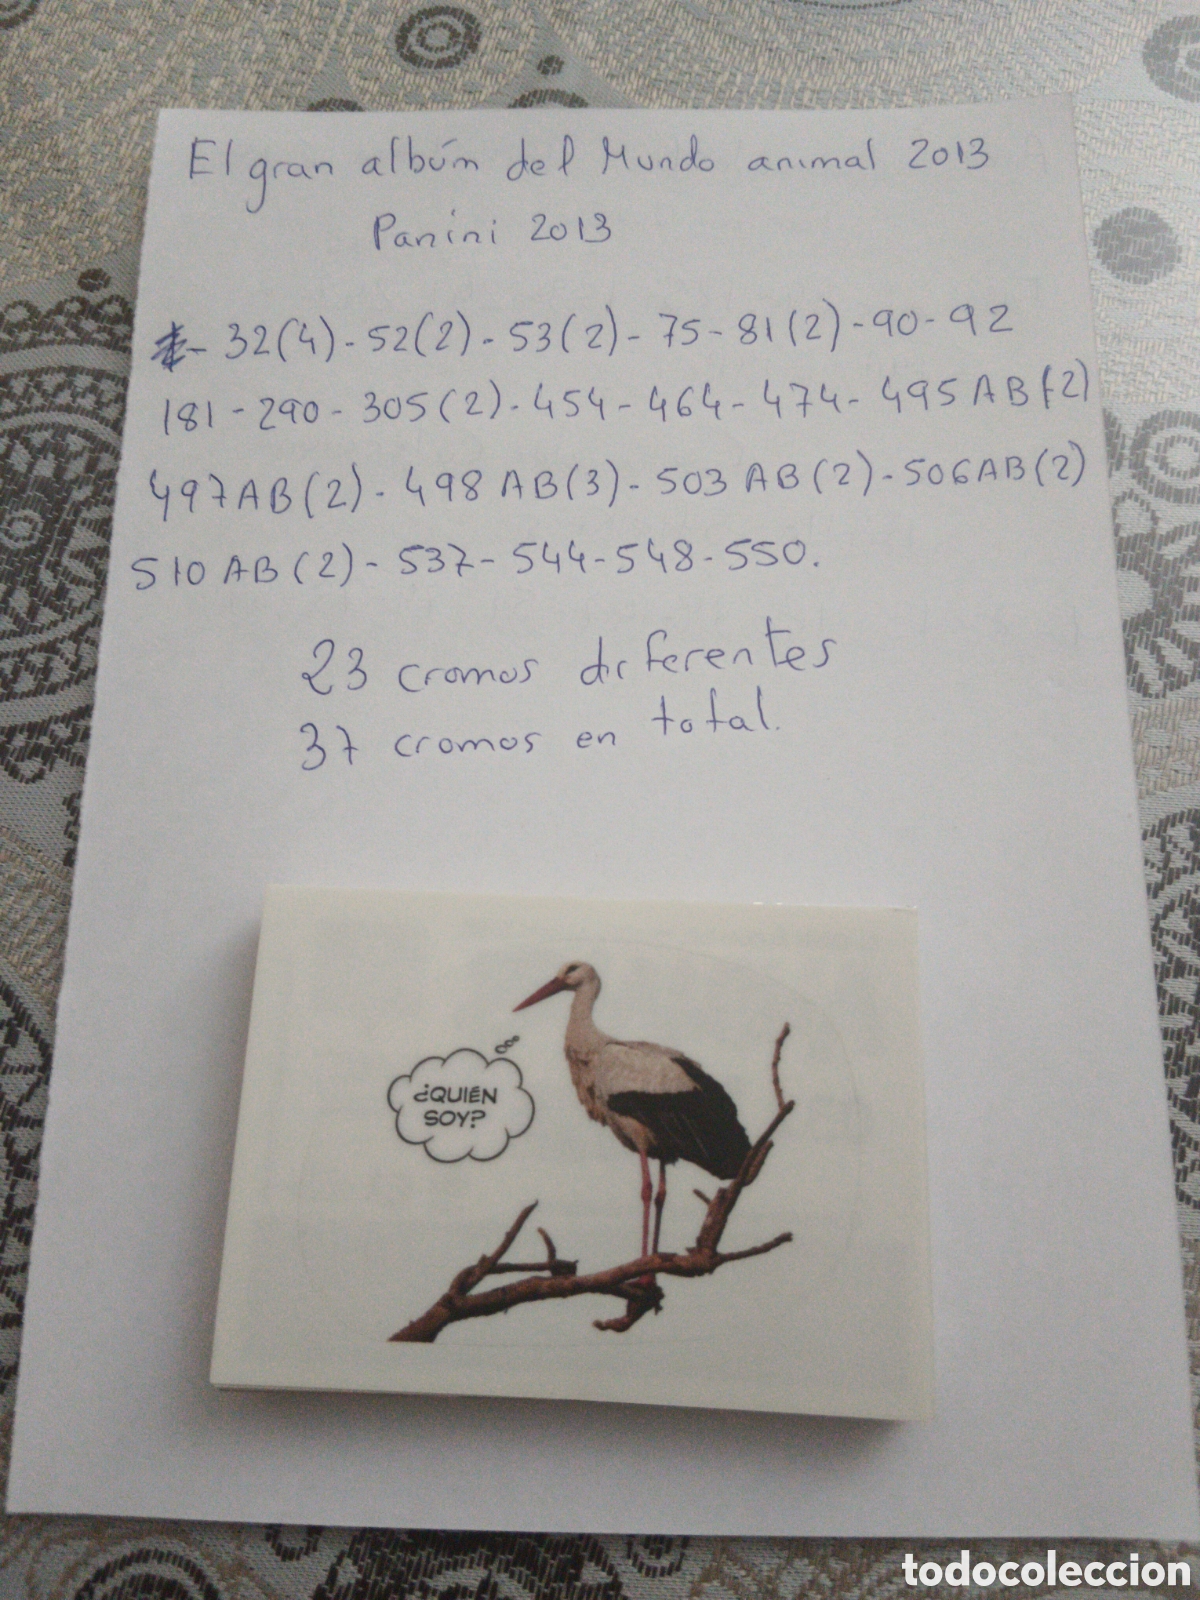 El gran albúm del Mundo animal 2013
Panini 2013
- 32(4) - 52(2) - 53(2) - 75 - 81(2) - 90 - 92
181 - 290 - 305(2) - 454 - 464 - 474 - 495 AB(2)
497 AB(2) - 498 AB(3) - 503 AB(2) - 506 AB(2)
510 AB(2) - 537 - 544 - 548 - 550.
23 cromos diferentes
37 cromos en total.
¿QUIÉN
SOY?
todocoleccion